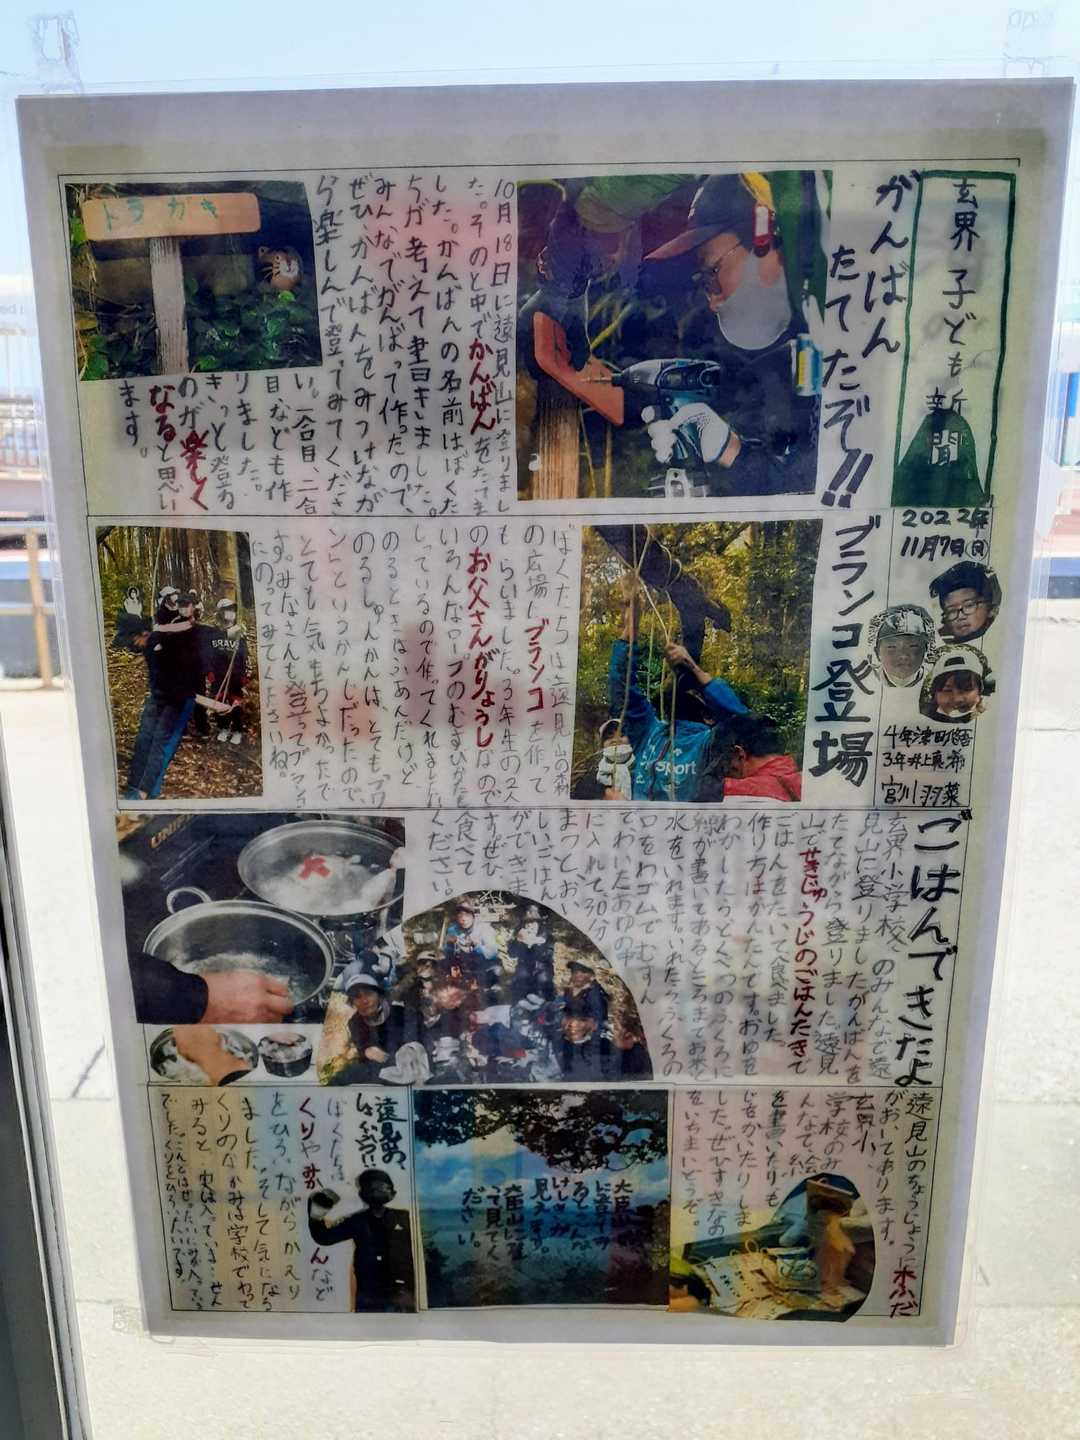 玄界子ども新聞
2022年
11月7日(月)
4年津田悠吾
3年井上真希
宮川羽菜
がんばん
たてたぞ!!
10月18日に遠見山に登りまし
た。そのと中でかんばんをたてま
した。かんばんの名前はぼくた
ちが考えて書きました。
みんなでがんばって作ったので、
ぜひ、かんばんをみつけなが
ら楽しんで登ってみてくださ
い。一合目、二合
目、なども作
りました。
きっと登る
のが楽しく
なると思い
ます。
トラがき
ブランコ登場
ぼくたちは遠見山の森
の広場にブランコを作って
もらいました。3年生の2人
のお父さんがりょうしなので
いろんなロープのむすびかたを
しっているので作ってくれました。
のるときはふあんだけど
のるしゅんかんは、とても「フワ
ン」というかんじだったので、
とても気もちよかったで
す。みなさんも登ってブランコ
にのってみてくださいね。
ごはんできたよ
玄界小学校のみんなで遠
見山に登りましたがんばんを
たてながら登りました。遠見
山でせきじゅうじのごはんたきで
ごはんをたいて食べました
作り方はかんたんです。おゆを
わかしたらとくべつのふくろに
線が書いてあるところまでお米と
水をいれます。いれたらふくろの
口をわゴムでむすん
でわいたおゆの中
に入れて、30分
まつとおい
しいごはん
ができま
すぜひ
食べて
ください。
遠見山のちょうじょうに木ふだ
がおいてあります。
玄界小
学校のみ
んなで、絵
を書いたりも
じをかいたりしま
した。ぜひすきなの
をいちまいどうぞ。
大臣山
に登ると
こんな
けしきが
見えます。
大臣山に登
って見てく
ださい。
ぼくたちは、
くりやみかんなど
をひろいながらかえり
ました。そして気になる
くりのなかみは学校でわって
みると、実は入っていません
でした。こんどはぜったいにみが入っている
くりをひろいたいです。